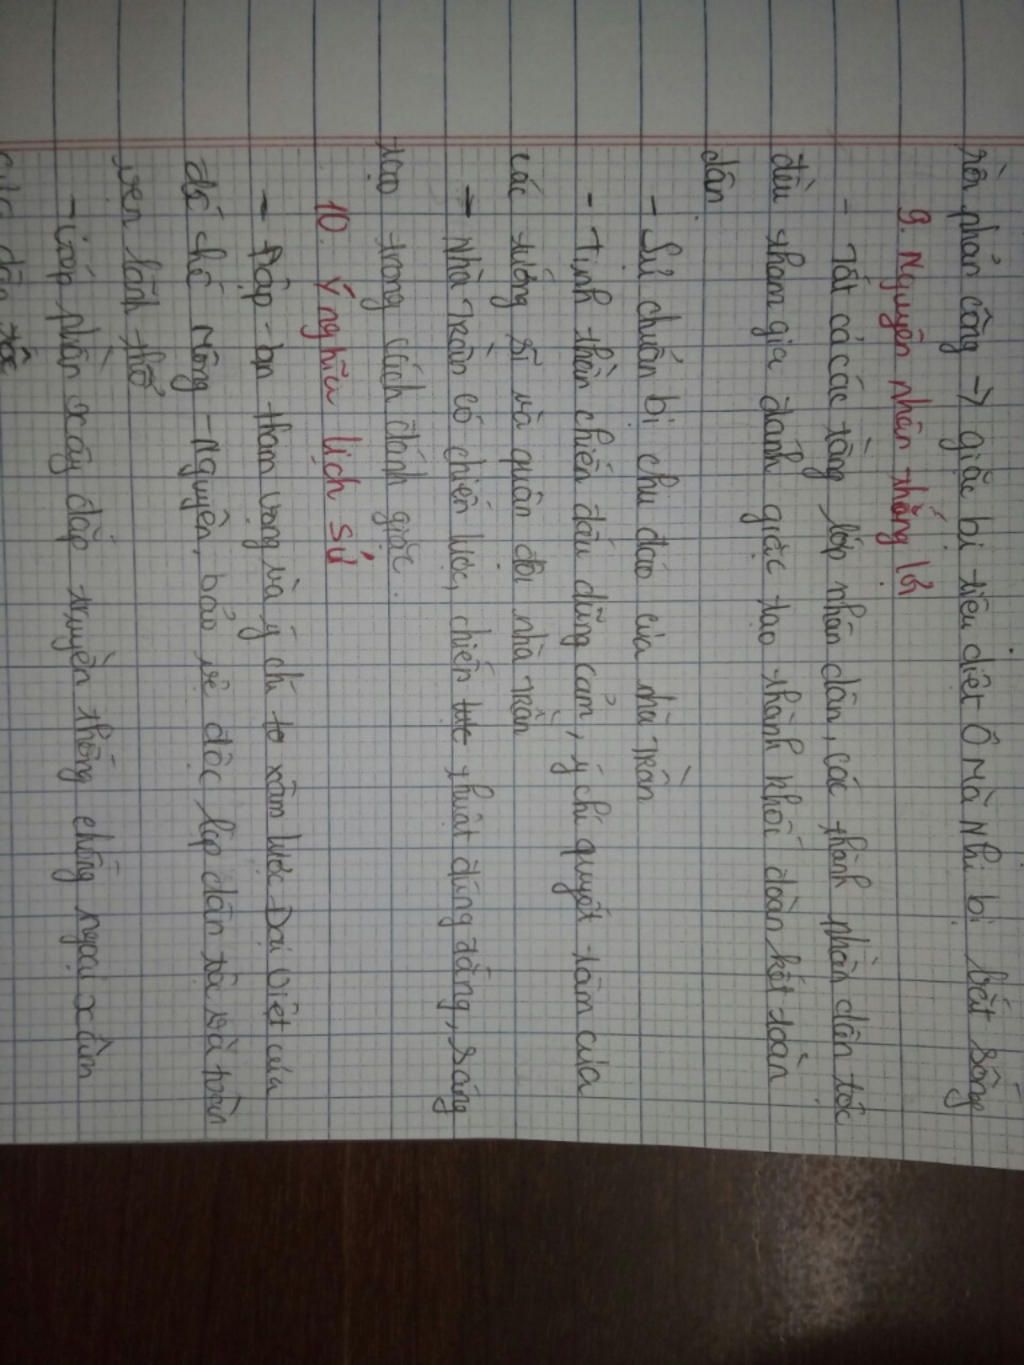 rồi phản công → giặc bị tiêu diệt Ô Mã Nhi bị bắt sống
9. Nguyên nhân thắng lợi
- Tất cả các tầng lớp nhân dân, các thành phần dân tộc
đều tham gia đánh giặc tạo thành khối đoàn kết toàn
dân.
- Sự chuẩn bị chu đáo của nhà Trần
- Tinh thần chiến đấu dũng cảm, ý chí quyết tâm của
các tướng sĩ và quân đội nhà Trần
- Nhà Trần có chiến lược, chiến thuật đúng đắng, sáng
tạo trong cách đánh giặc.
10. Ý nghĩa lịch sử
- Đập tan tham vọng và ý chí xâm lược Đại Việt của
đế chế Mông - Nguyên, bảo vệ độc lập dân tộc và toàn
vẹn lãnh thổ
- Góp phần xây đắp truyền thống chống ngoại xâm
của dân tộc